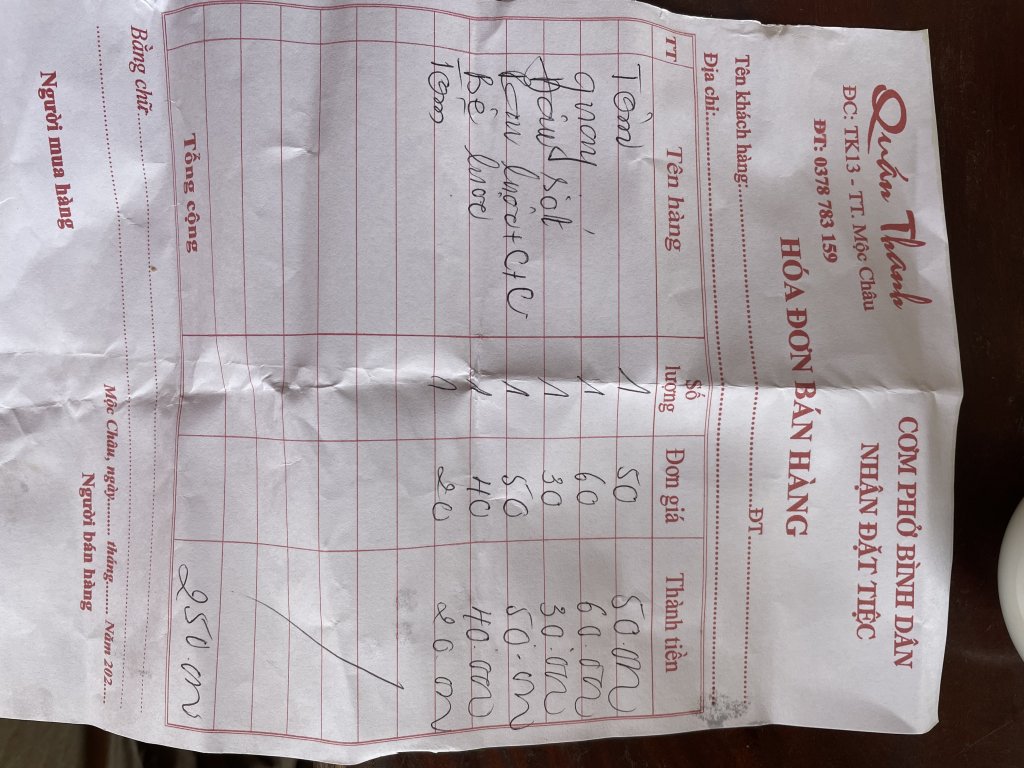 Quán Thanh
ĐC: TK13 - TT. Mộc Châu
ĐT: 0378 783 159
CƠM PHỞ BÌNH DÂN
NHẬN ĐẶT TIỆC
HÓA ĐƠN BÁN HÀNG
Tên khách hàng:..........ĐT..........
Địa chỉ:..........
TT Tên hàng Số lượng Đơn giá Thành tiền
Tôm 1 50 50.000
quang 1 60 60.000
Đậu sốt 1 30 30.000
Rau luộc+C+C 1 50 50.000
Bê luộc 1 40 40.000
1 20 20.000
Tổng cộng 250.000
Bằng chữ..........
Mộc Châu, ngày.......... tháng.......... Năm 202.....
Người mua hàng Người bán hàng